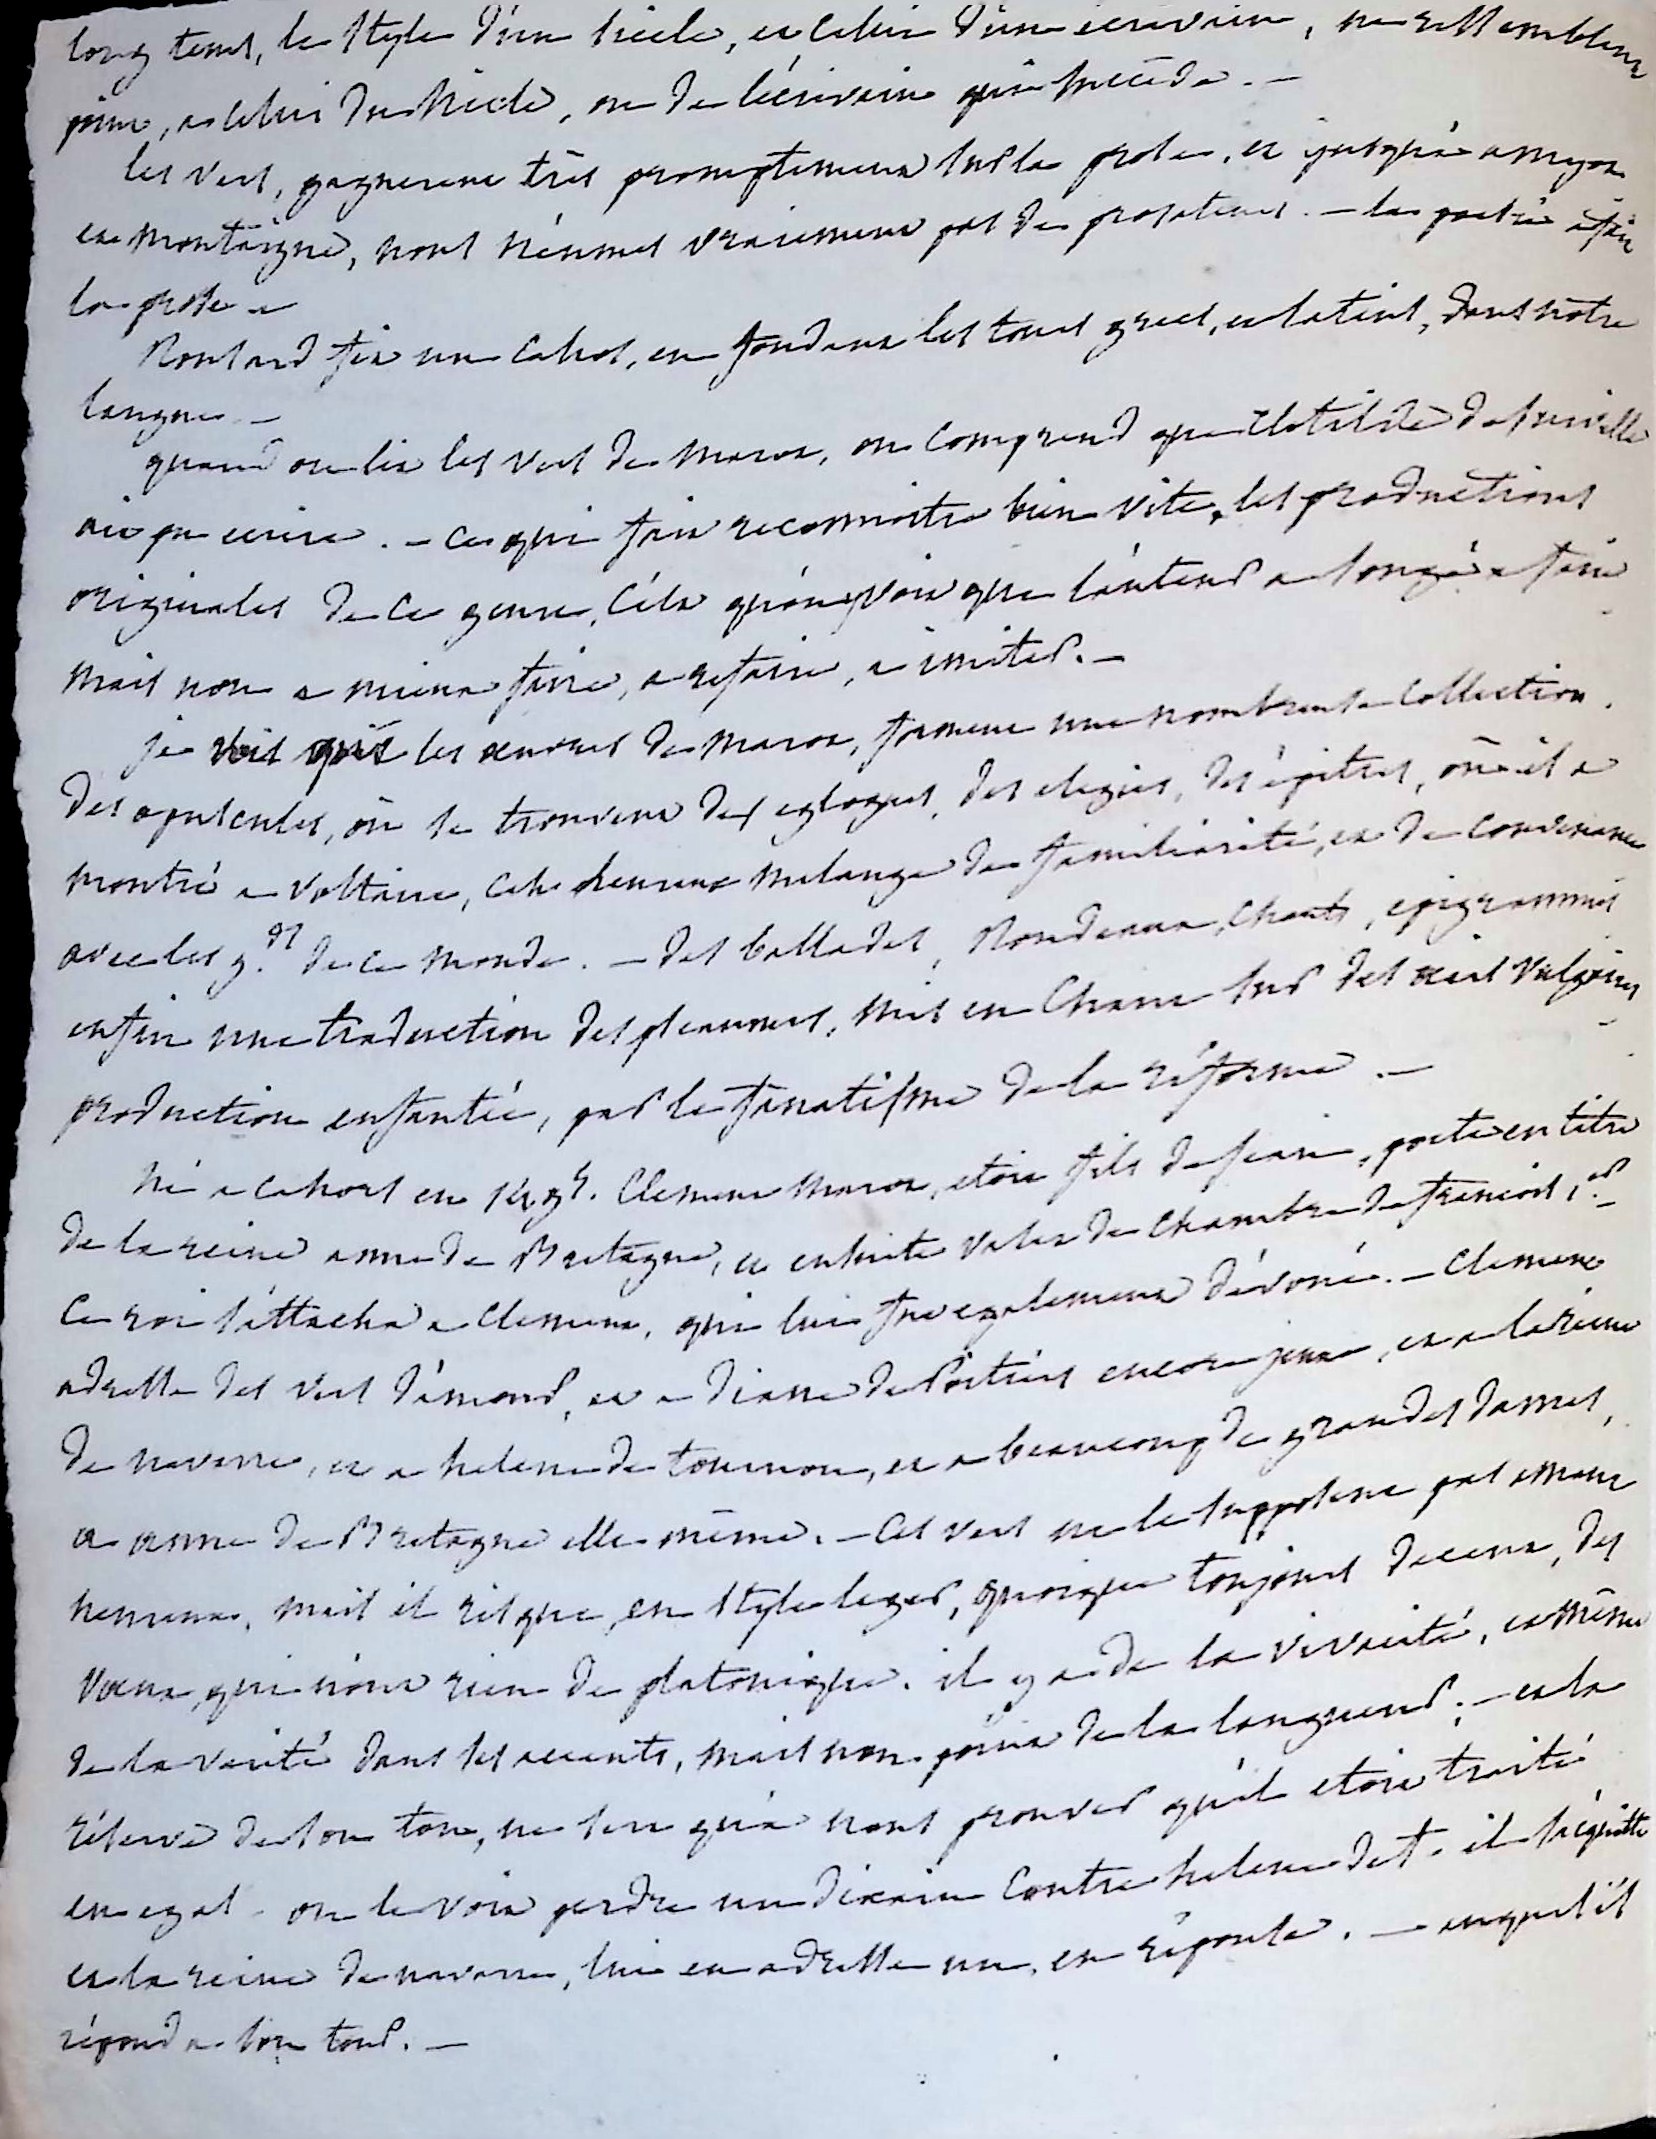 long tems, le style d'un siecle, et celui d'un ecrivain, ne ressemblent
point, a celui du siecle, ou de l'écrivain qui precede. —
les vers, gagnerent très promptement sur la prose, et jusqu'à amyot
et montaigne, nous n'eumes vraiement pas de prosateurs. — la poesie a fait
la prose —
Ronsard fit un cahos, en fondant les tours grecs, et latins, dans notre
langue —
quand on lit les vers de marot, on comprend que Clotilde de surville
ait pu ecrire. — ce qui fait reconnoitre bien vite, les productions
originales de ce genre, c'est qu'on y voit que l'auteur a songé a faire
mais non a mieux faire, a refaire, a imiter. —
je vois que les œuvres de marot, forment une nombreuse collection.
des opuscules, où se trouvent des eglogues, des elegies, des épitres, où il a
montré a voltaire, cet heureux melange de familiarité, et de convenance
avec les g.ds de ce monde. — des ballades, Rondeaux, chants, epigrammes
enfin une traduction des pseaumes, mis en chant sur des airs vulgaires
production enfantée, par le fanatisme de la réforme. —
Né a cahors en 1495. Clement marot, etoit fils de jean, poete en titre
de la reine anne de Bretagne, et ensuite valet de chambre de francois, 1.er
Ce roi s'attacha a Clement, qui lui fut egalement dévoué. — Clement
adresse des vers d'amour, et a diane de Poitiers encore jeune, et a la reine
de navarre, et a helene de tournon, et a beaucoup de grandes dames,
a anne de Bretagne elle même. — Ces vers ne le supposent pas amant
heureux, mais il risque, en style leger, quoique toujours decent, des
vœux, qui n'ont rien de platonique. il y a de la vivacité, et même
de la verité dans ses accents, mais non point de la langueur. — et la
réserve de son ton, ne sert qu'à nous prouver qu'il etoit traité
en egal — on le voit perdre un dixain contre helene de t. il s'acquitte
et la reine de navarre, lui en adresse un, en réponse. — auquel il
répond a son tour. —